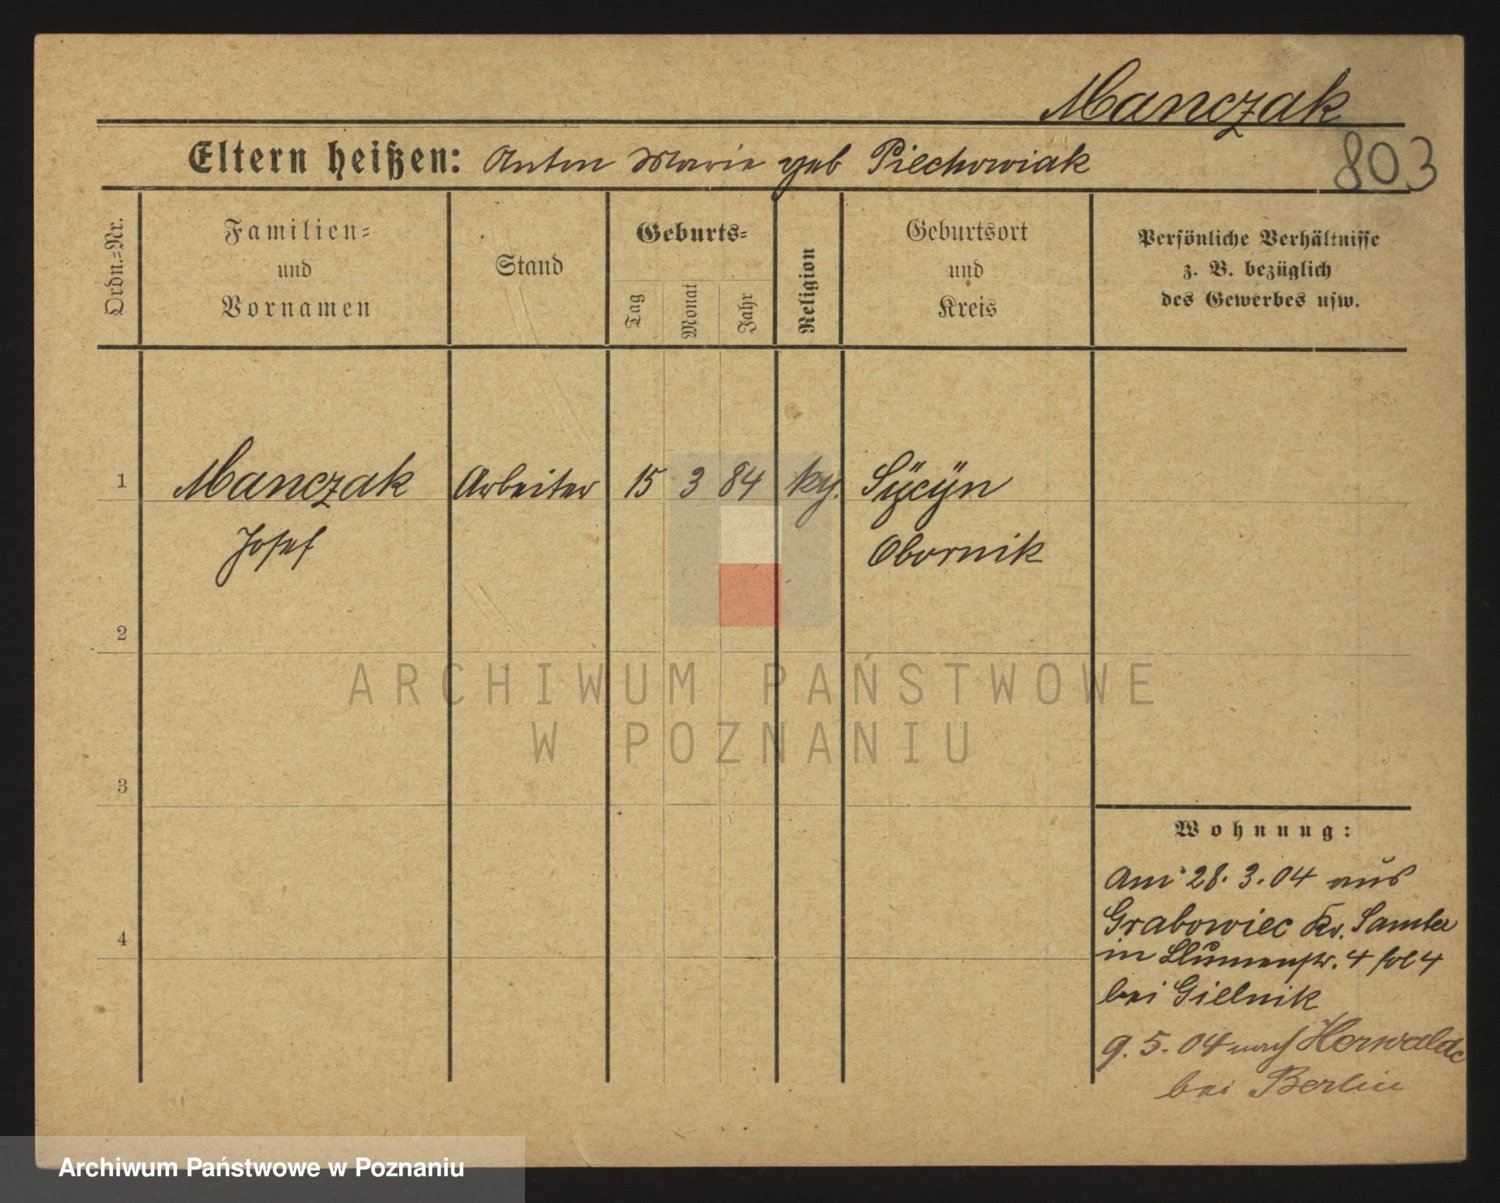 Manczak
803
Eltern heißen: Anton Marie geb Piechowiak
Ordn.-Nr.
Familien-
und
Vornamen
Stand
Geburts-
Tag
Monat
Jahr
Religion
Geburtsort
und
Kreis
Persönliche Verhältnisse
z. B. bezüglich
des Gewerbes usw.
1
Manczak Arbeiter 15 3 84 Sÿcÿn
Josef Obornik
2
3
4
Wohnung:
Am 28.3.04 aus
Grabowiec Kr. Samter
in 4
bei Gielnik
9.5.04 nach
bei Berlin
ARCHIWUM PAŃSTWOWE
W POZNANIU
Archiwum Państwowe w Poznaniu